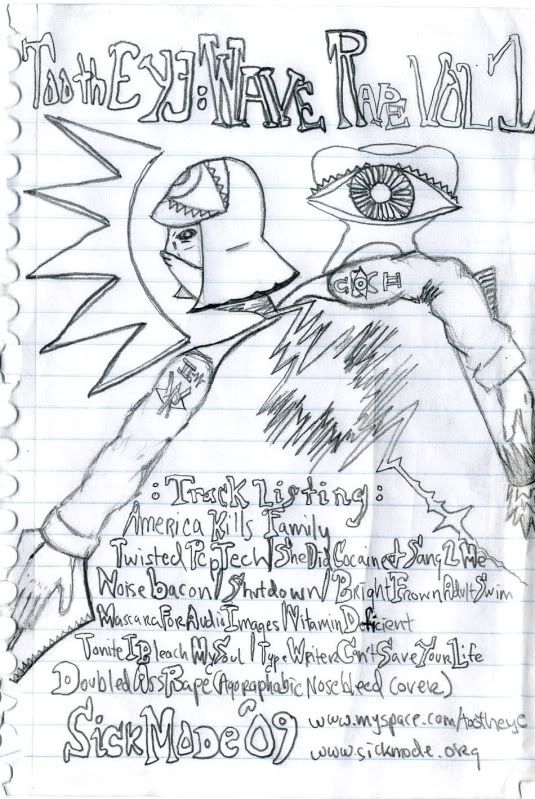 Tooth Eye: Wave Rape Vol 1
: Track Listing :
America Kills Family
Twisted Pcp Tech / She Did Cocaine + Sang 2 Me
Noise bacon / Shutdown / Bright Frown Adult Swim
Mascara For Audio Images / Vitamin Deficient
Tonite I Bleach My Soul / Type Writer Can't Save Your Life
Doubled Ass Rape (Agoraphobic Nosebleed cover)
Sick Mode 09 www.myspace.com/tootheye
www.sickmode.org